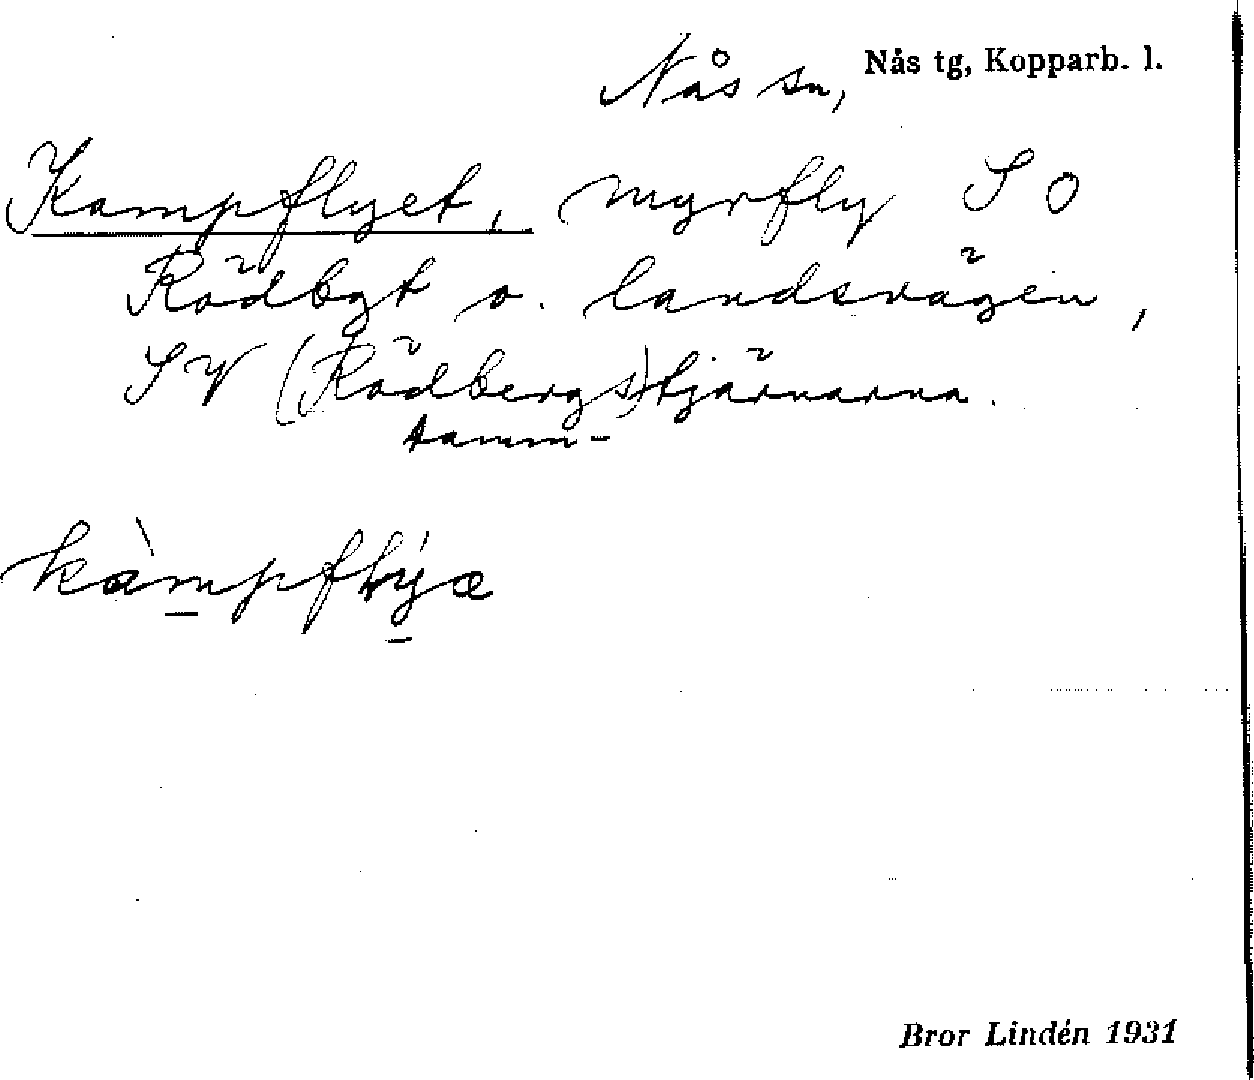 Nås sn, Nås tg, Kopparb. l.
Kampflyet, myrfly SO
Rödbgt o. landsvägen,
SV (Rödbergs)tjärnarna.
tamm-
kàmpflýæ
Bror Lindén 1931